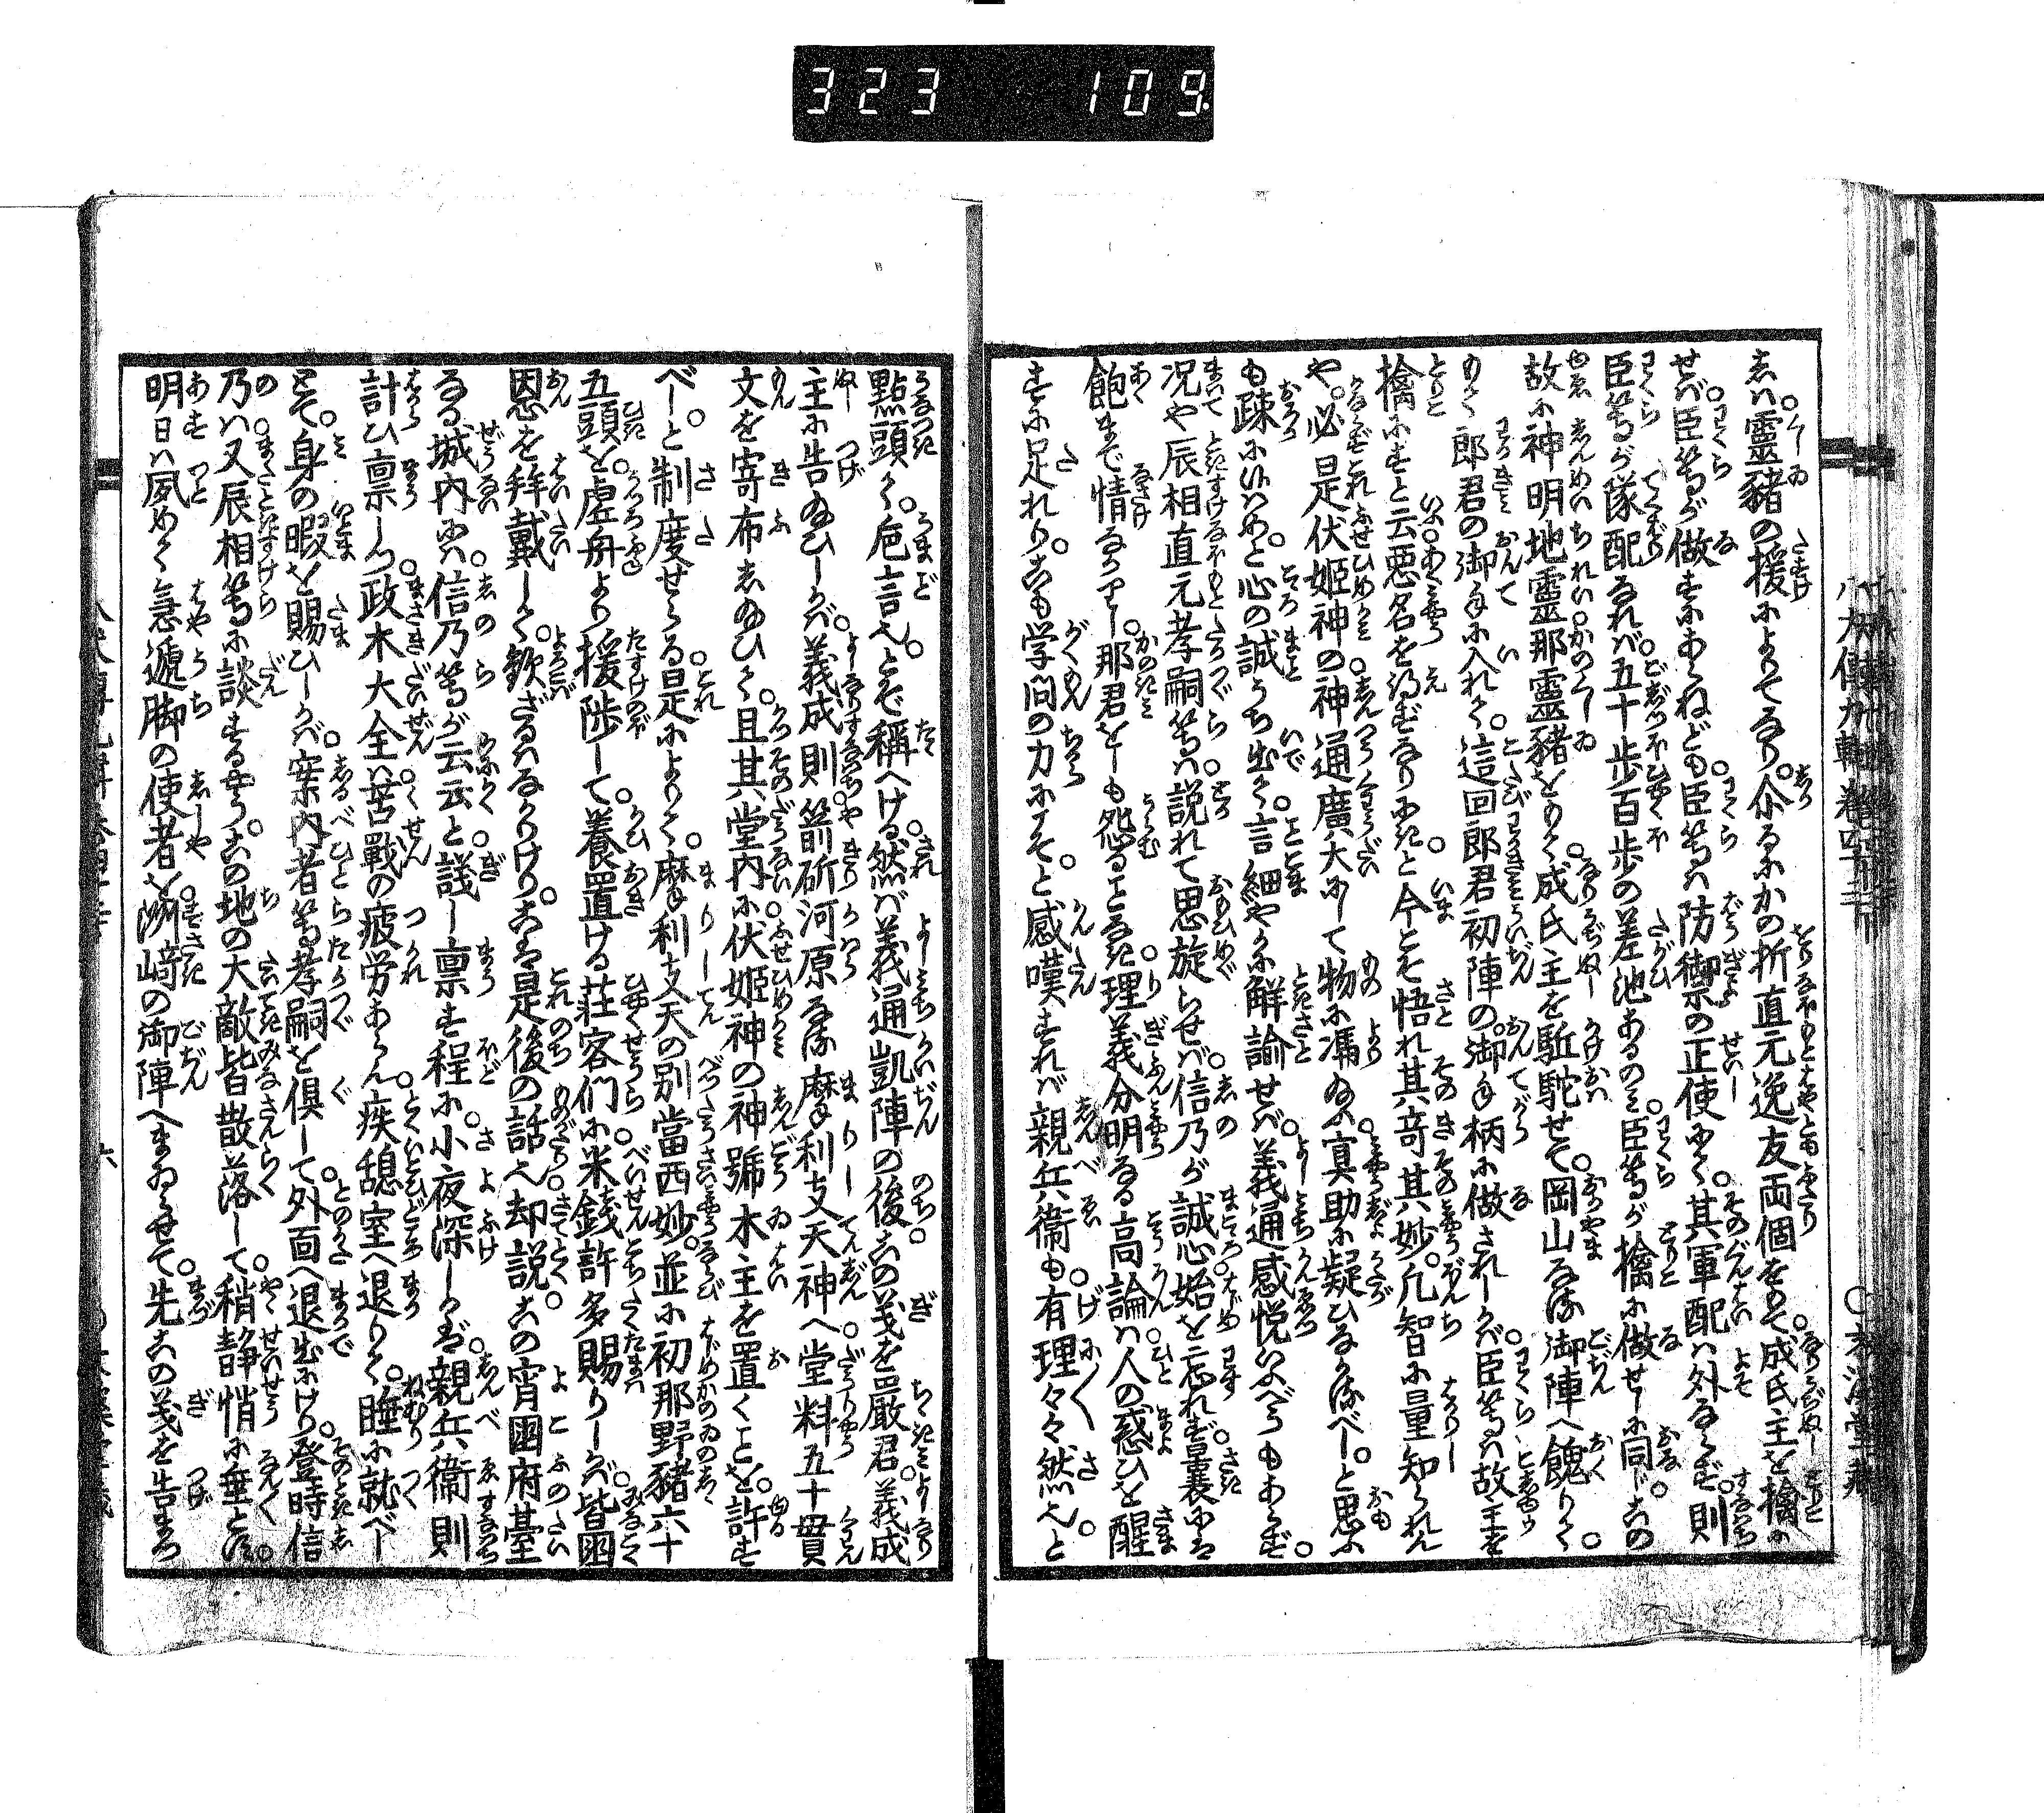 323 109
八犬傳九輯卷四十二
しハ靈豬の援によりてなり。尒るにかの折直元逸友両個をもて成氏主を擒に
せバ臣等が做すにあらねども。臣等ハ防禦の正使にて。其軍配ハ外ならず。則
臣等が隊配なれバ。五十歩百歩の差池あるのミ。臣等が擒に做せしに同じ。この
故に神明地靈那靈豬をもて。成氏主を駈駝せて。岡山なる御陣へ餽りて。
もて郎君の御手に入れて。這回郎君初陣の御手柄に做されしかバ。臣等ハ故主を
擒にすと云悪名を得ざりにきと。今こそ悟れ其竒其妙。凡智に量知られん
や。必是伏姬神の神通廣大にして。物に馮給ふ冥助に疑ひなかるべし。と思ふ
も疎にハいめと。心の誠うち出て。言細やかに觧諭せバ。義通感悦いふべうもあらず。
况や辰相直元孝嗣等ハ。説れて思旋らせバ。信乃が誠心始を忘れず。曩にハ
飽まで情なかりし。那君をしも怨ることなき。理義分明なる高論ハ。人の惑ひを醒
すに足れり。こも学问の力にこそ。と感嘆すれバ親兵衛も。有理々々然也と
點頭て。危言也。とぞ稱へける。然バ義通凱陣の後。この义を嚴君義成
主に告給ひしかバ。義成則箭斫河原なる。摩利支天神へ堂料五十貫
文を寄布し給ひて。且其堂内に伏姬神の神號木主を置くことを。許す
べしと制度せらる。是によりて。摩利支天の別當西妙。並に初那野豬六十
五頭を。虚舟より援陟して。養置ける荘客们に。米錢許多賜りしかバ。皆國
恩を拜戴して。歓ざるハなかりけり。こハ是後の話也。却説この宵國府臺
なる城内にハ。信乃等が云云と。議し禀す程に。小夜深しかバ。親兵衛則
計ひ禀しつ。政木大全ハ苦戰の疲労あらん。疾憩室へ退りて。睡に就べし
とて。身の暇を賜ひしかバ。案内者等孝嗣を俱して。外面へ退出にけり。登時信
乃ハ又辰相等に談ずるやう。この地の大敵皆散落して。稍静悄に垂とす。
明日ハ夙めて急遞脚の使者を。洲﨑の御陣へまゐらせて。先この义を告まつ